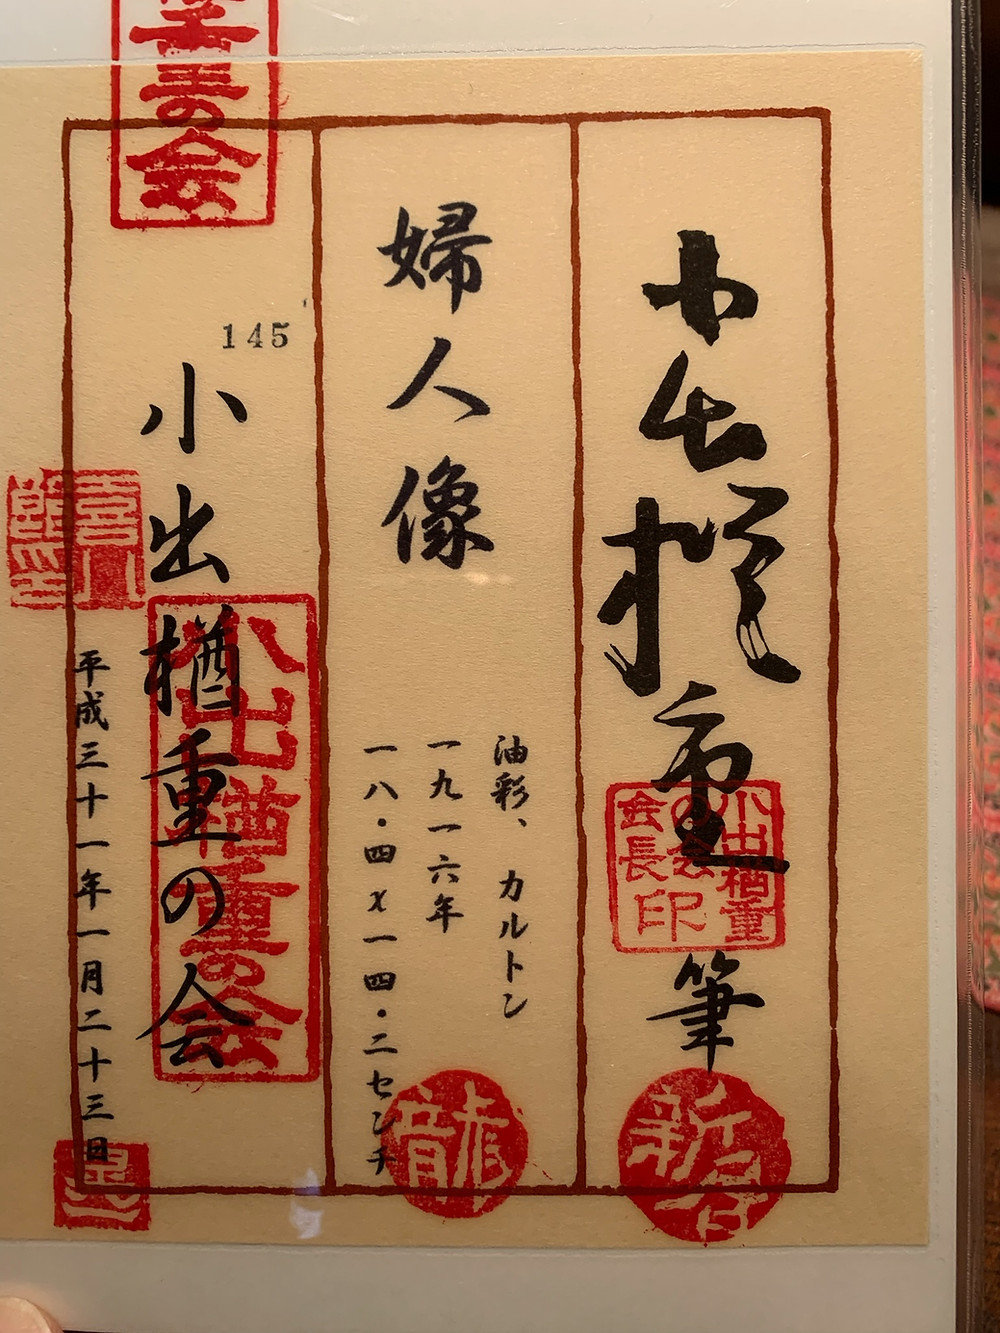 小出楢重
筆
小出楢重の会会長印
婦人像
油彩、カルトン
一九一六年
一八・四×一四・二センチ
龍
145
小出楢重の会
小出楢重の会
平成三十一年一月二十三日
重の会